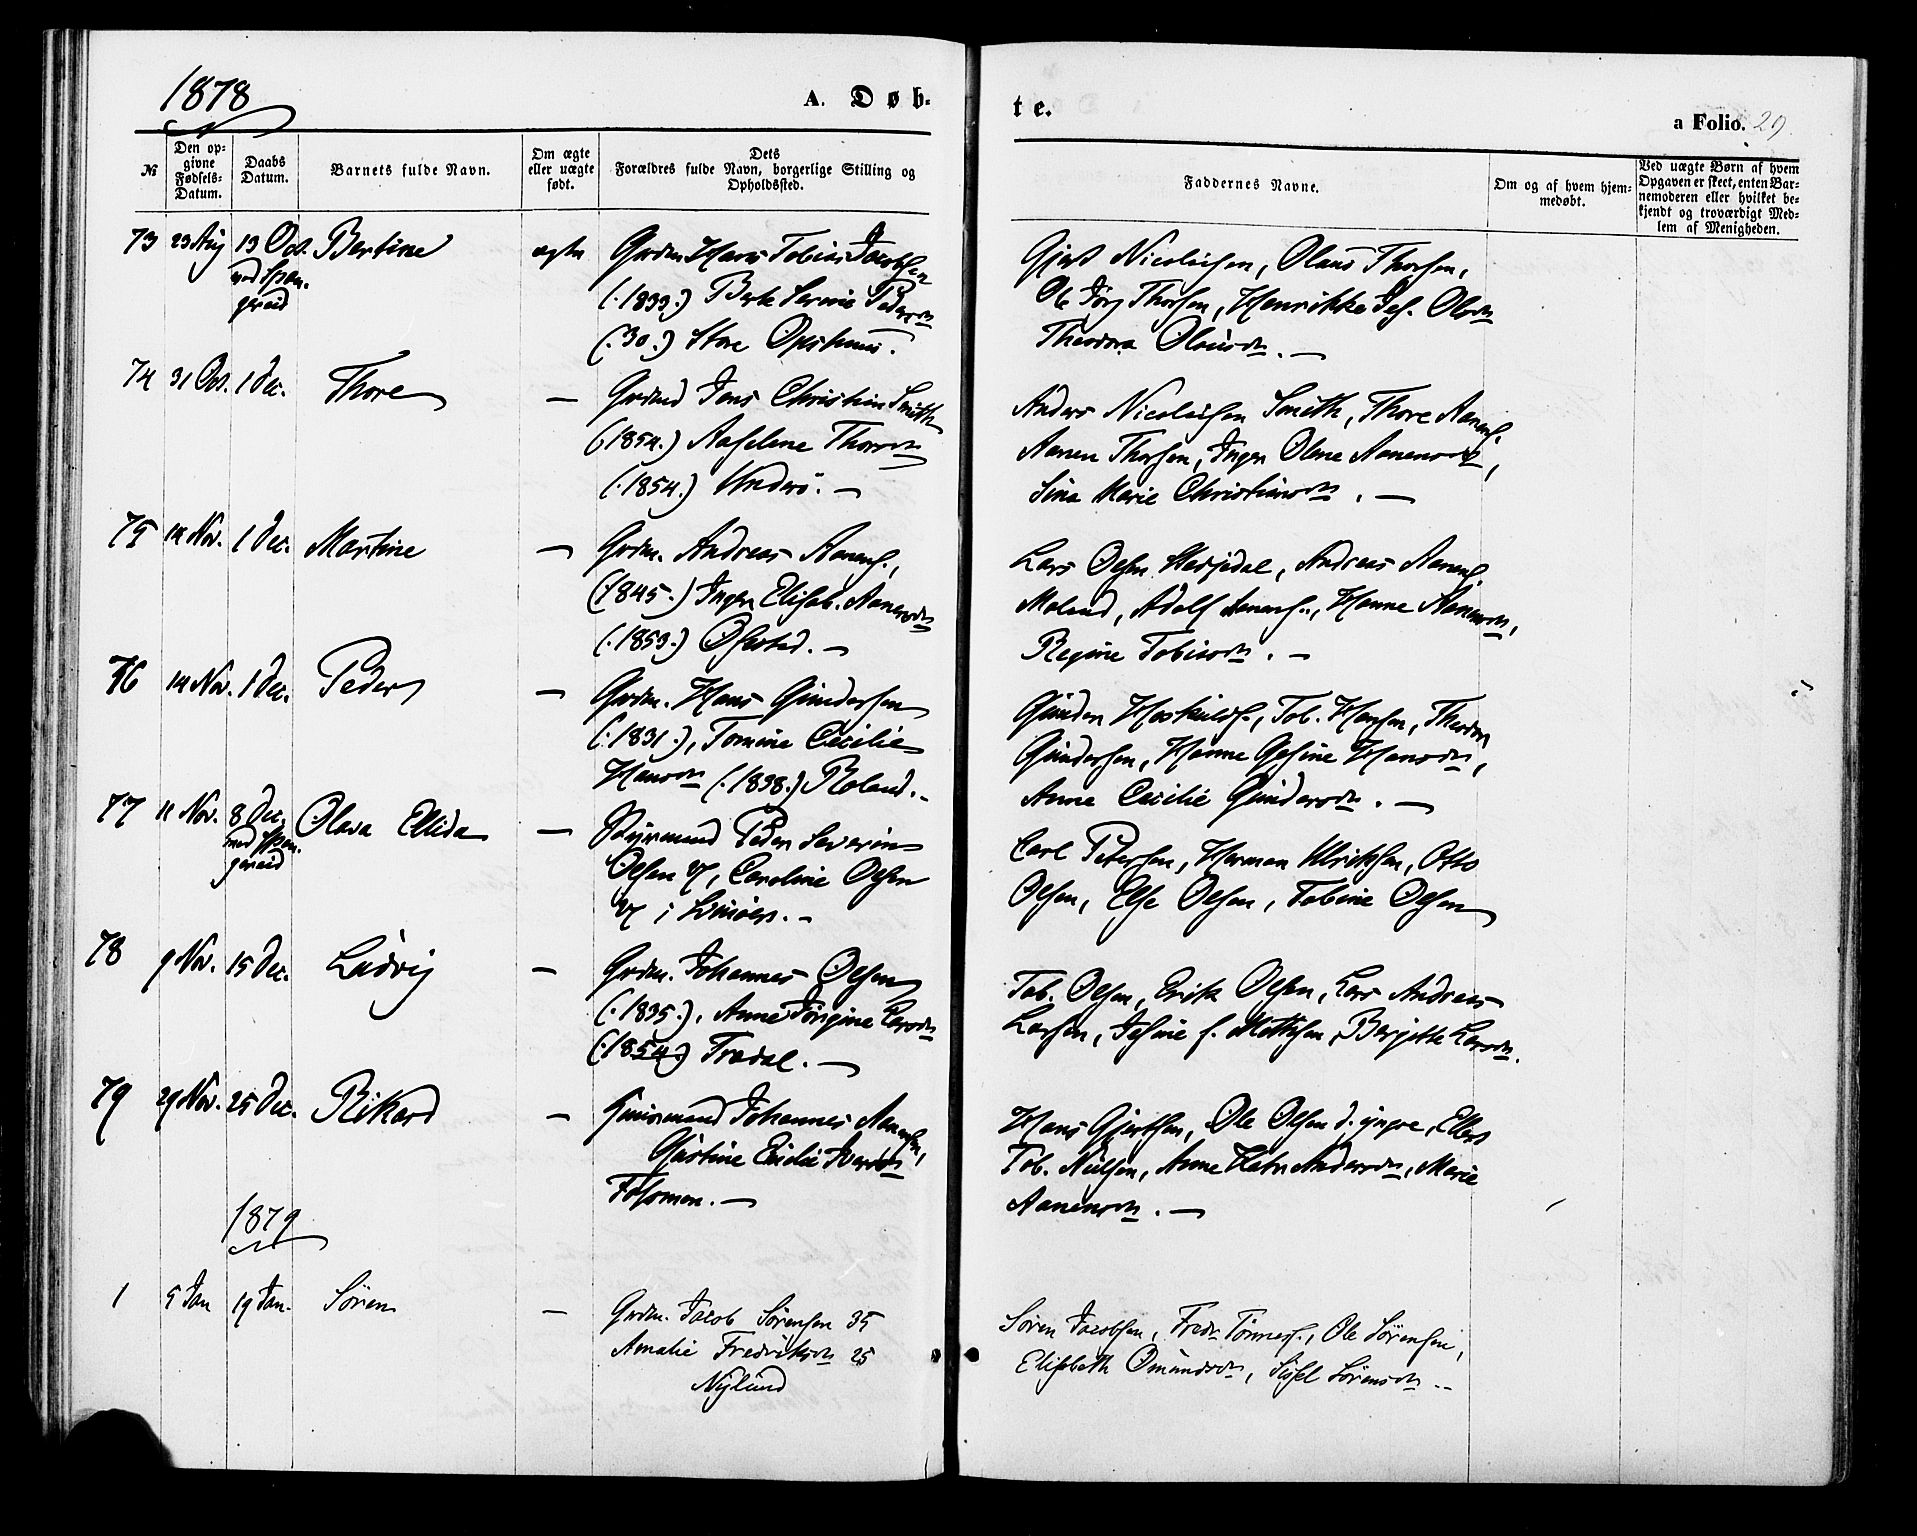 1878
A. Døb-
te.
a Folio. 29.
№
Den op-
givne
Fødsels-
Datum.
Daabs
Datum.
Barnets fulde Navn.
Om ægte
eller uægte
født.
Dets
Forældres fulde Navn, borgerlige Stilling og
Opholdssted.
Faddernes Navne.
Om og af hvem hjem-
medøbt.
Ved uægte Børn af hvem
Opgaven er skeet, enten Bar-
nemoderen eller hvilket be-
kjendt og troværdigt Med-
lem af Menigheden.
73 23 Aug 13 Oct. Bertine ægte Grdm. Hans Tobias Jacobsen
ved Span-
gereid
(.1833.) Berte Serine Pedersdtr
(.30.) Store Opshuus.
Gjert Nicolaisen, Olaus Thorsen,
Ole Jörg Thorsen, Henrikke Jes. Olsdtr
Theodora Olausdtr. —
74 31 Oct. 1 Dec. Thore — Grdmd Jens Christian Smith
(1854.) Aaselene Thorsdtr
(.1854.) Underö. —
Anders Nicolaisen Smith, Thore Aanens.
Aanen Thorsen, Inger Oline Aanensdtr,
Sina Marie Christiansdtr. —
75 14 Nov. 1 Dec. Martine — Grdm. Andreas Aanens.,
(1845.) Inger Elisab. Aanensdtr
(.1853.) Ofsted. —
Lars Olsen, Andreas Aanens.
Moland, Adolf Aanens., Hanne Aanensdtr,
Regine Tobiasdtr. —
76 14 Nov. 1 Dec. Peder — Grdm. Hans Gundersen
(.1831.), Tomine Cecilie
Hansdtr (.1838.) Roland. -
Gunder Hoskulds., Tob. Hansen, Theodor
Gundersen, Hanne Gesine Hansdtr,
Anne Cecilie Gundersdtr. —
77 11 Nov. 8 Dec. Olava Ellida — Styrmand Peder Severin
ved Span-
gereid
Olsen &, Caroline Olsen
& i
Carl Petersen, Herman Ulriksen, Otto
Olsen, Else Olsen, Tobine Olsen
78 9 Nov. 15 Dec. Ludvig — Grdm. Johannes Olsen
(.1835.), Anne Jörgine Larsdtr
(.1854.) Trædal. —
Tob. Olsen, Erik Olsen, Lars Andreas
Larsen, Jesine f. Mathsen, Bergitte Larsdtr.
79 29 Nov. 25 Dec. Rikard — Huusmand Johannes Aanensen,
Gustine Emilie Iversdtr
Fossmon. —
Hans Gjertsen, Ole Olsen d. yngre, Ellert
Tob. Nielsen, Anne Kath. Andersdtr, Marie
Aanensdtr. —
1879
1 5 Jan 19 Jan. Sören — Grdm. Jacob Sörensen 35
Amalie Fredriksdtr 25
Nylund
Sören Jacobsen, Fredr. Tönness., Ole Sörensen,
Elisabeth Omundsdtr, Sissel Sörensdtr. -